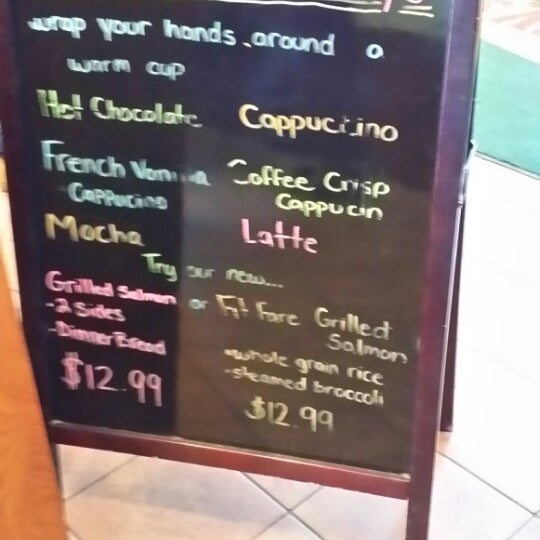 wrap your hands around a
warm cup
Hot Chocolate
Cappuccino
French Vanilla
Cappuccino
Coffee Crisp
Cappucin
Mocha
Latte
Try our new...
Grilled Salmon
-2 Sides
-Dinner Bread
$12.99
or
Fit Fare Grilled
Salmon
-whole grain rice
-steamed broccoli
$12.99